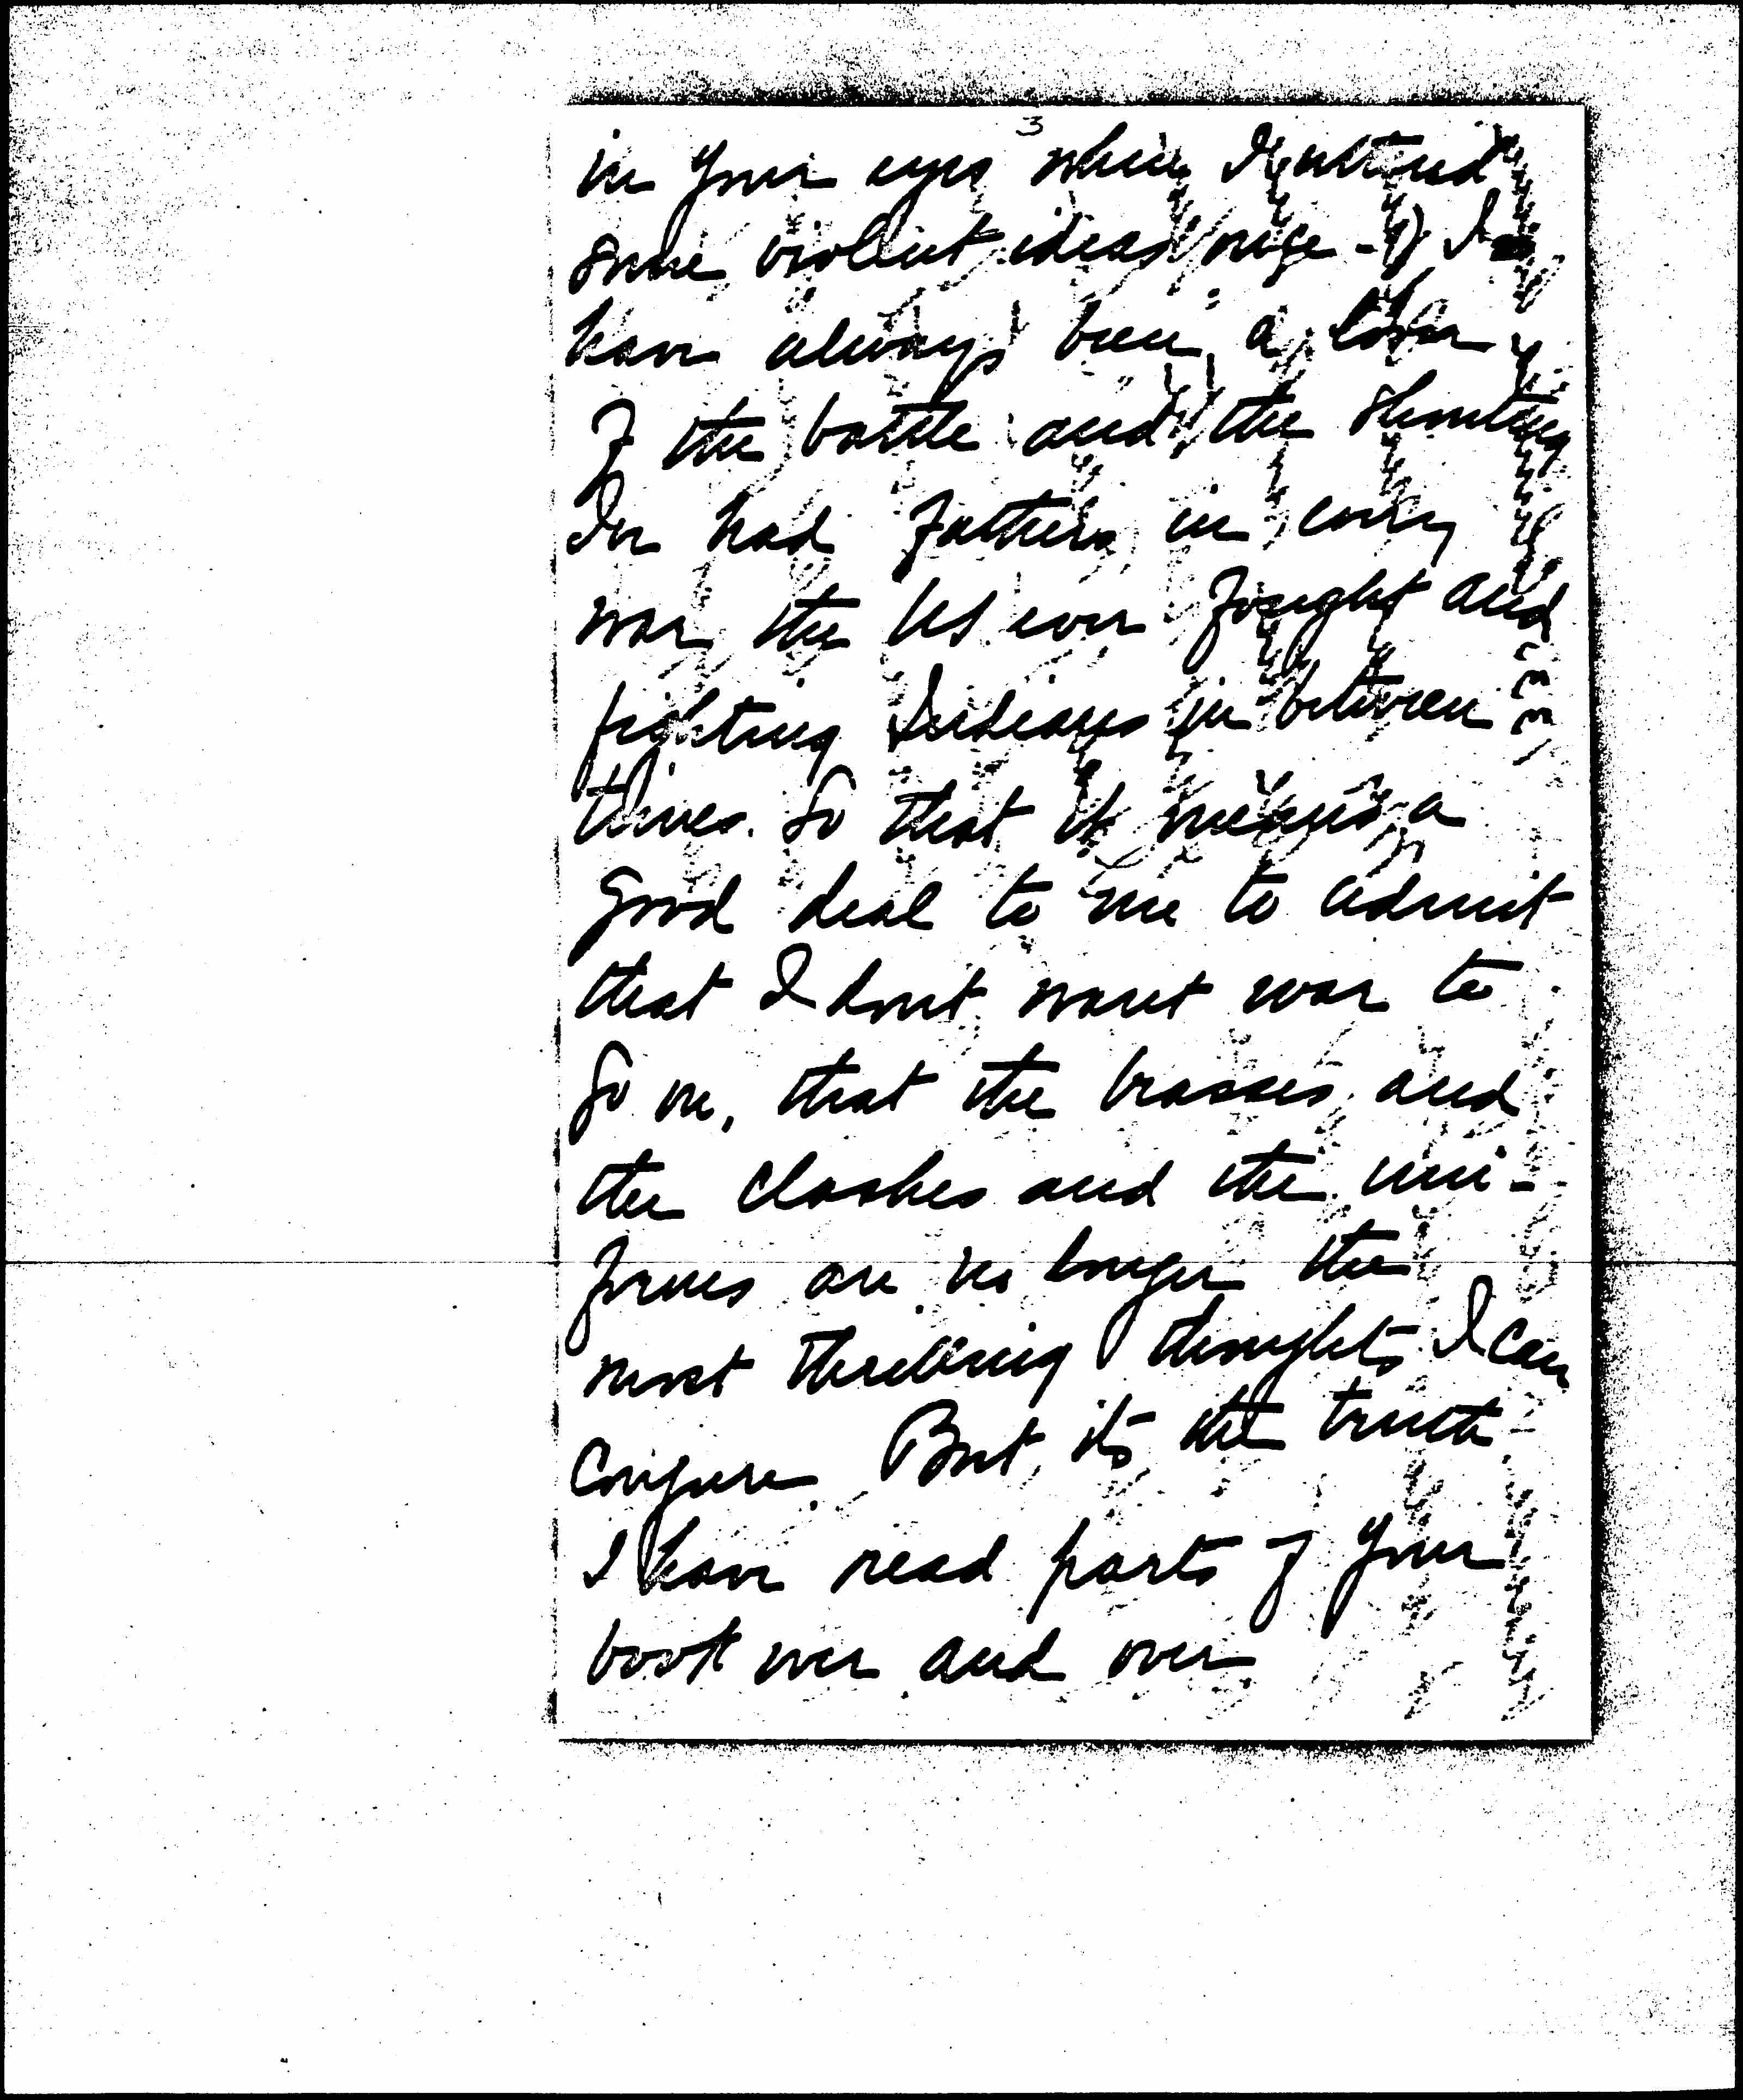 3
in your eyes when I uttered
some violent ideas once - I
have always been a lover
of the battle and the shouting
I've had fathers in every
war the US ever fought and
fighting Indians in between
times. So that it means a
good deal to me to admit
that I don't want war to
go on, that the brasses and
the clashes and the uni-
forms are no longer the
most thrilling thoughts I can
conjure. But, its the truth.
I have read parts of your
book over and over